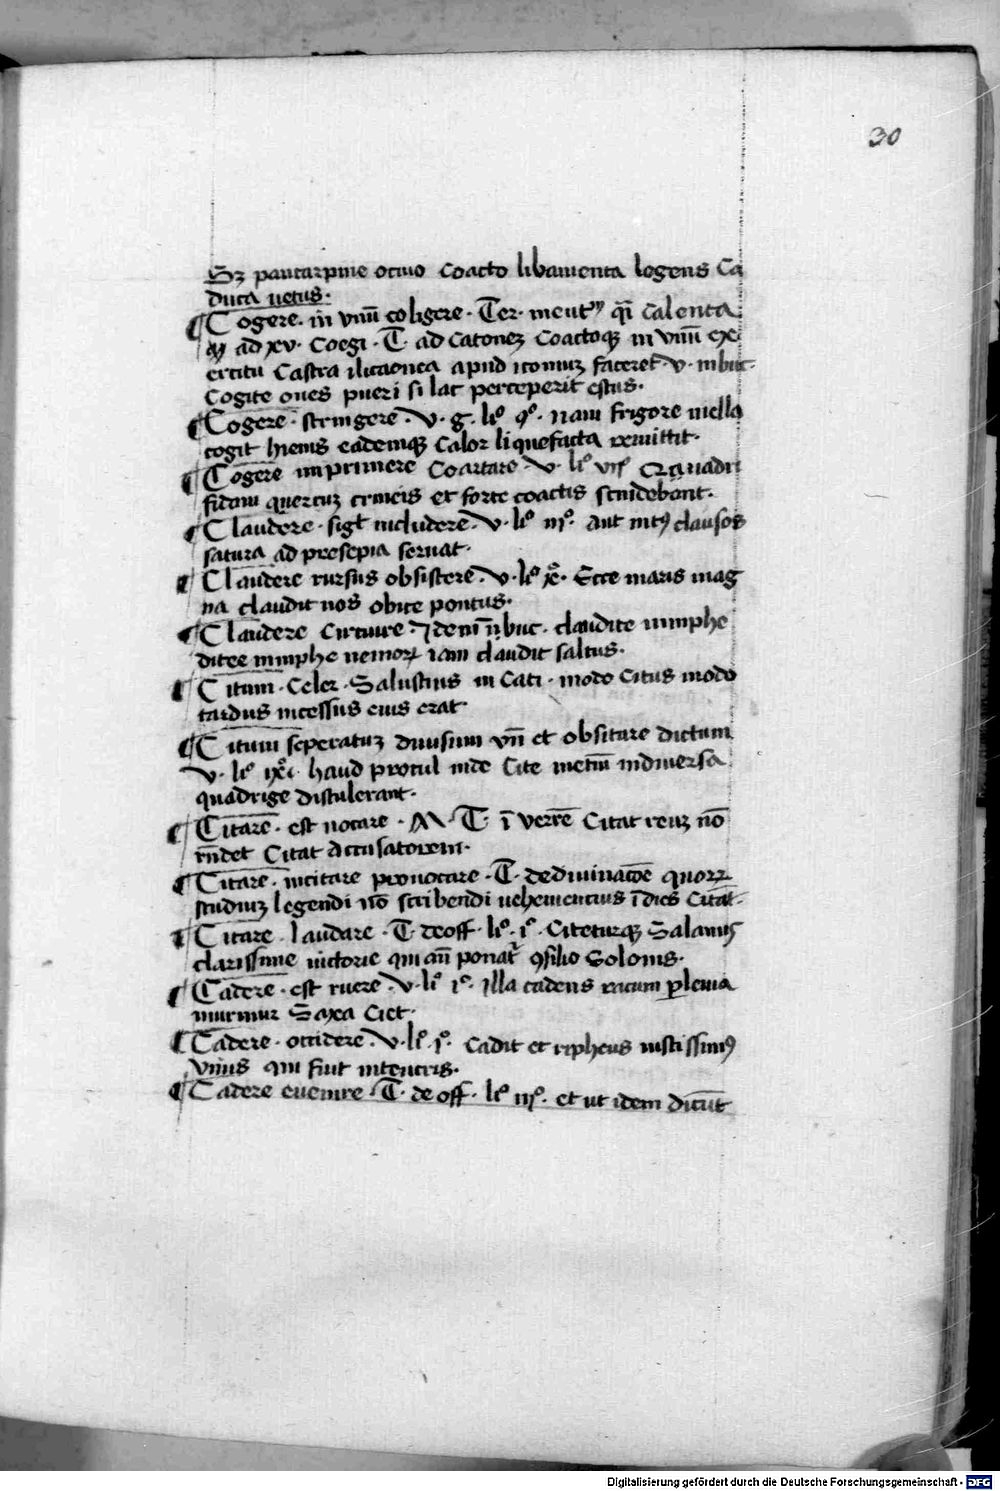 30
Sz paucarpine ocino Coacto libamenta legens Ca
duca uetus·
Cogere· in vnū coligere· Ter· q̄i Calenta
ad xv· Coegi· T· ad Catonez Coactoqz in vnū exe
ercitu Castra apud iconiuz faceret· v· in buc·
Cogite oues pueri si lac perceperit estus·
Cogere· stringere· v· g· lio qo· nam frigore mella
cogit hiems eademqz Calor liquefacta remittit·
Cogere imprimere Coartare· v· lio viio Q quadri
fidam quercuz cuneis et forte coactis scindebant·
Claudere· sigt includere· v· lio iiio· Aut int9 clausos
satura ad presepia seruat·
Claudere rursus obsistere· v· lio xo· Ecce maris mag
na claudit nos obice pontus·
Claudere Circuire· Idem i buc· claudite nimphe
ditee nimphe nemorꝝ iam claudit saltus·
Citum· Celer· Salustius in Cati· modo Citus modo
tardus incessus eius erat·
Citum seperatuz diuisum vn̄ et obsitare dictum
v· lio haud procul inde Cite metiū indiuersa
quadrige distulerant·
Citare· est uocare· M· T· ī verrē Citat reuz nō
rn̄det Citat Accusatorem·
Citare· incitare prouocare· T· de diuinacōe quorꝝ
studiuz legendi nō scribendi uehementius ī dies Citat·
Citare· laudare· T· de off· lio· io· Citeturqz Salamis
clarissime uictorie que an̄ ponat̄ ꝯsilio Solonis·
Cadere· est ruere· v· li· io· Illa cadens racum p leuia
murmur Saxa Ciet·
Cadere· occidere· v· lio· io· Cadit et ripheus iustissim9
Vnus qui fiut inteucris·
Cadere euenire· T· de off· lio iiio· et ut idem dicūt
Digitalisierung gefördert durch die Deutsche Forschungsgemeinschaft - DFG